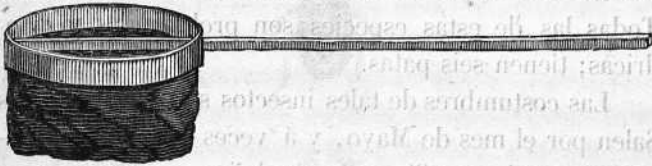 Todas las de estas especies son
dricas; tienen seis patas.
Las costumbres de tales insectos
Salen por el mes de Mayo, y á veces